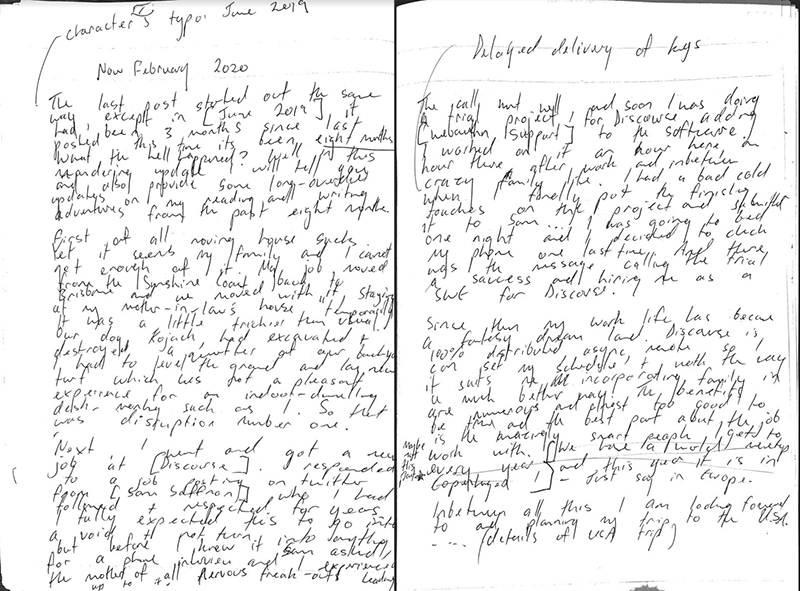 character's typo: June 2019
Now February 2020
The last post started out the same
way except in [June 2019] it
had been 3 months since I last
posted this time its been eight months
What the hell happened? Well this
meandering update will tell you
and also provide some long-overdue
updates on my reading and writing
adventures from the past eight months.
First of all moving house sucks.
Yet it seems my family and I cannot
get enough of it. My job moved
from the Sunshine Coast back to
Brisbane and we moved with it, staying
at my mother-in-law's house temporarily
It was a little trickier than usual,
our dog, Kojack, had excavated &
destroyed a quarter of our backyard
I had to level the ground and lay new
turf which was not a pleasant
experience for an indoor-dwelling
desk-monkey such as I. So that
was disruption number one.
Next, I went and got a new
job at [Discourse]. I responded
to a job posting on twitter
from [Sam Saffron] who I had
followed & respected for years
I fully expected this to go into
a void & not turn into anything
but before I knew it Sam asked
for a phone interview and I experienced
the mother of all nervous freak-outs leading
up to it
Delayed delivery of keys
The call went well and soon I was doing
a trial project for Discourse adding
[webauthn support] to the software.
I worked on it an hour here an
hour there after work and inbetween
crazy family life. I had a bad cold
when I finally put the finishing
touches on the project and submitted
it to Sam... I was going to bed
one night and I decided to check
my phone one last time. And there
was the message calling the trial
a success and hiring me as a
SWE for Discourse.
Since then my work life has become
a fantasy dream land. Discourse is
100% distributed, async, remote so I
can set my schedule, & work the way
it suits me incorporating family in
a much better way! The benefits
are numerous and almost too good to
be true and the best part about the job
is the amazingly smart people I get to
work with. [We have a world meetup
every year and this year it is in
Copenhagen!] - Just say in Europe.
maybe
not
this
part
Inbetween all this I am looking forward
to and planning my trip to the USA.
..... (details of USA trip)